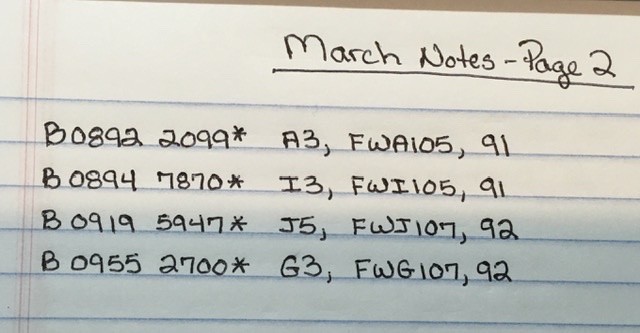 March Notes - Page 2
B0892 2099* A3, FWA105, 91
B0894 7870* I3, FWI105, 91
B0919 5947* J5, FWJ107, 92
B0955 2700* G3, FWG107, 92